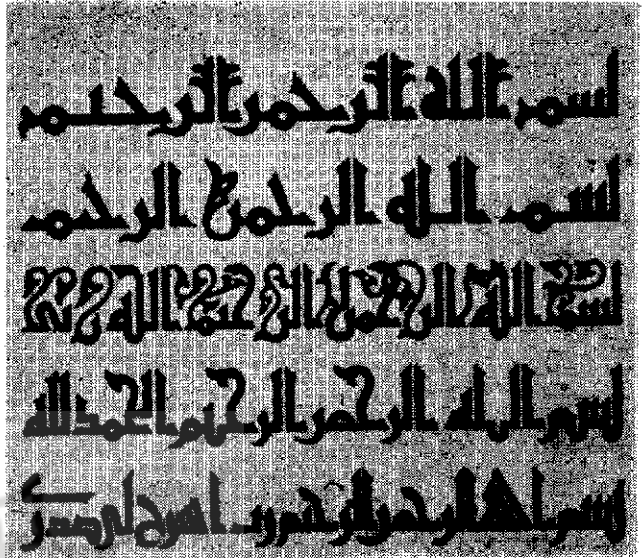 بسم الله الرحمن الرحيم
بسم الله الرحمن الرحيم
بسم الله الرحمن الرحيم
بسم الله الرحمن الرحيم الحمد لله
بسم الله الرحمن الرحيم اشرح لي صدري